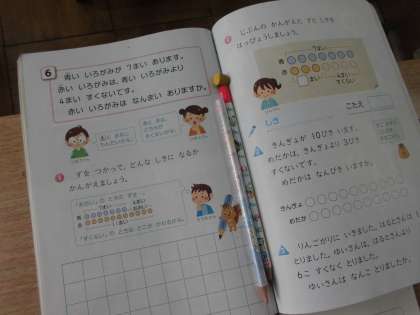 6
青い いろがみが 7まい あります。
赤い いろがみは、青い いろがみより
4まい すくないです。
赤い いろがみは なんまい ありますか。
1 ずを つかって、どんな しきに なるか
かんがえましょう。
「おおい」の ときの ずを…
7まい
青
赤
「すくない」の ときは どこが かわるかな。
じぶんの かんがえた ずと しきを
はっぴょうしましょう。
7まい
青
赤
しき
こたえ
きんぎょが 10ぴき います。
めだかは、きんぎょより 3びき
すくないです。
めだかは なんびき いますか。
きんぎょ
めだか
りんごがりに いきました。はるとさんは
とりました。ゆいさんは、はるとさんより
6こ すくなく とりました。
ゆいさんは なんこ とりましたか。